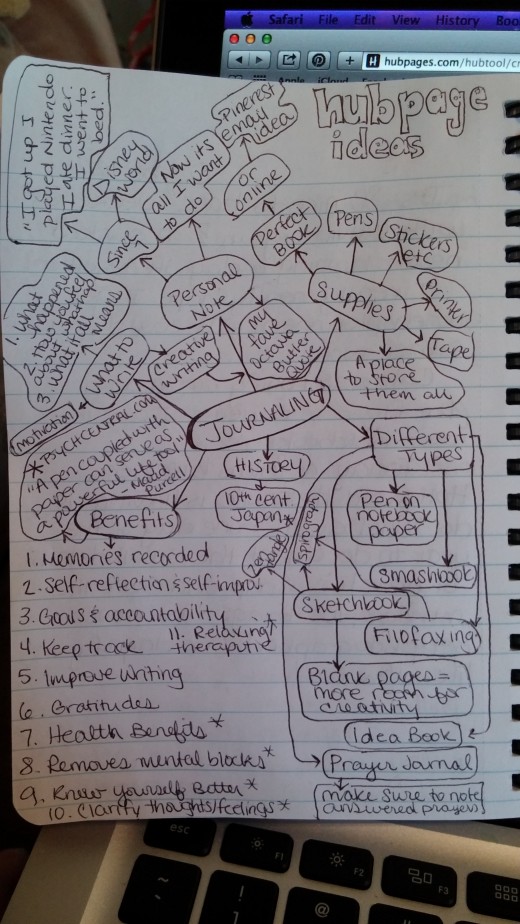 Safari File Edit View History Boo
hubpages.com/hubtool/cr
Apple iCloud
hubpage
ideas
"I got up I
played Nintendo
I ate dinner.
I went to
bed."
Disney
World
Since 7
Now its
all I want
to do
Pinerest
email
idea
or
online
Personal
Note
Perfect
Book
Pens
Stickers
etc
Printer
Tape
Supplies
A place
to store
them all
1. What
happened
2. How you feel
about what hap
3. what it all
means
What to
Write
Creative
Writing
my
fave
Octavia
Butler
Quote
motivation
JOURNALING
*PSYCHCENTRAL.COM
"A pen coupled with
paper can serve as
a powerful life tool"
- Maud
Purcell
Benefits
HISTORY
10th cent
Japan*
Different
Types
Pen on
notebook
paper
Smashbook
Filofaxing
Zen
tangle
Spirograph
Sketchbook
Blank pages =
more room for
creativity
Idea Book
Prayer Jornal
make sure to note
answered prayers
1. Memories recorded
2. Self-reflection & self-improv.
3. Goals & accountability
4. Keep track
11. Relaxing/
theraputic
5. Improve writing
6. Gratitudes
7. Health Benefits*
8. Removes mental blocks*
9. Know yourself Better*
10. Clarify thoughts/feelings*
esc
F1
F2
F3
~
!
@